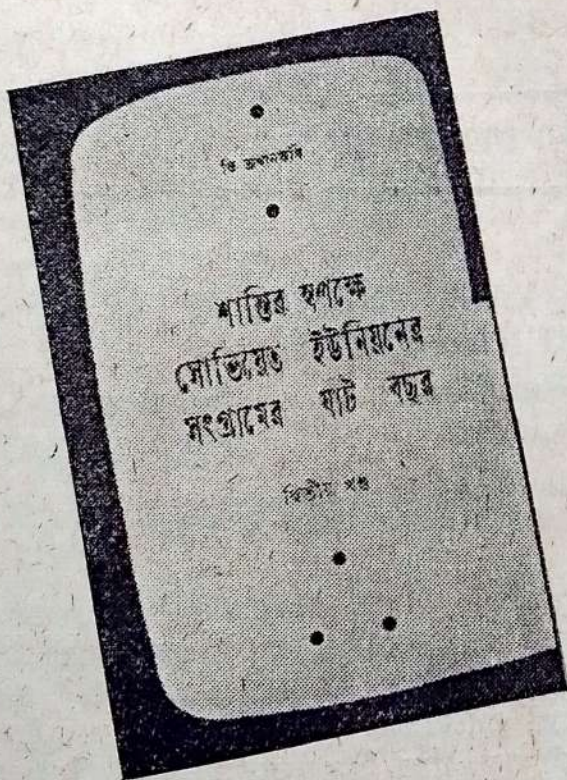 শান্তির স্বপক্ষে
সোভিয়েত ইউনিয়নের
সংগ্রামের ষাট বছর
দ্বিতীয় খণ্ড